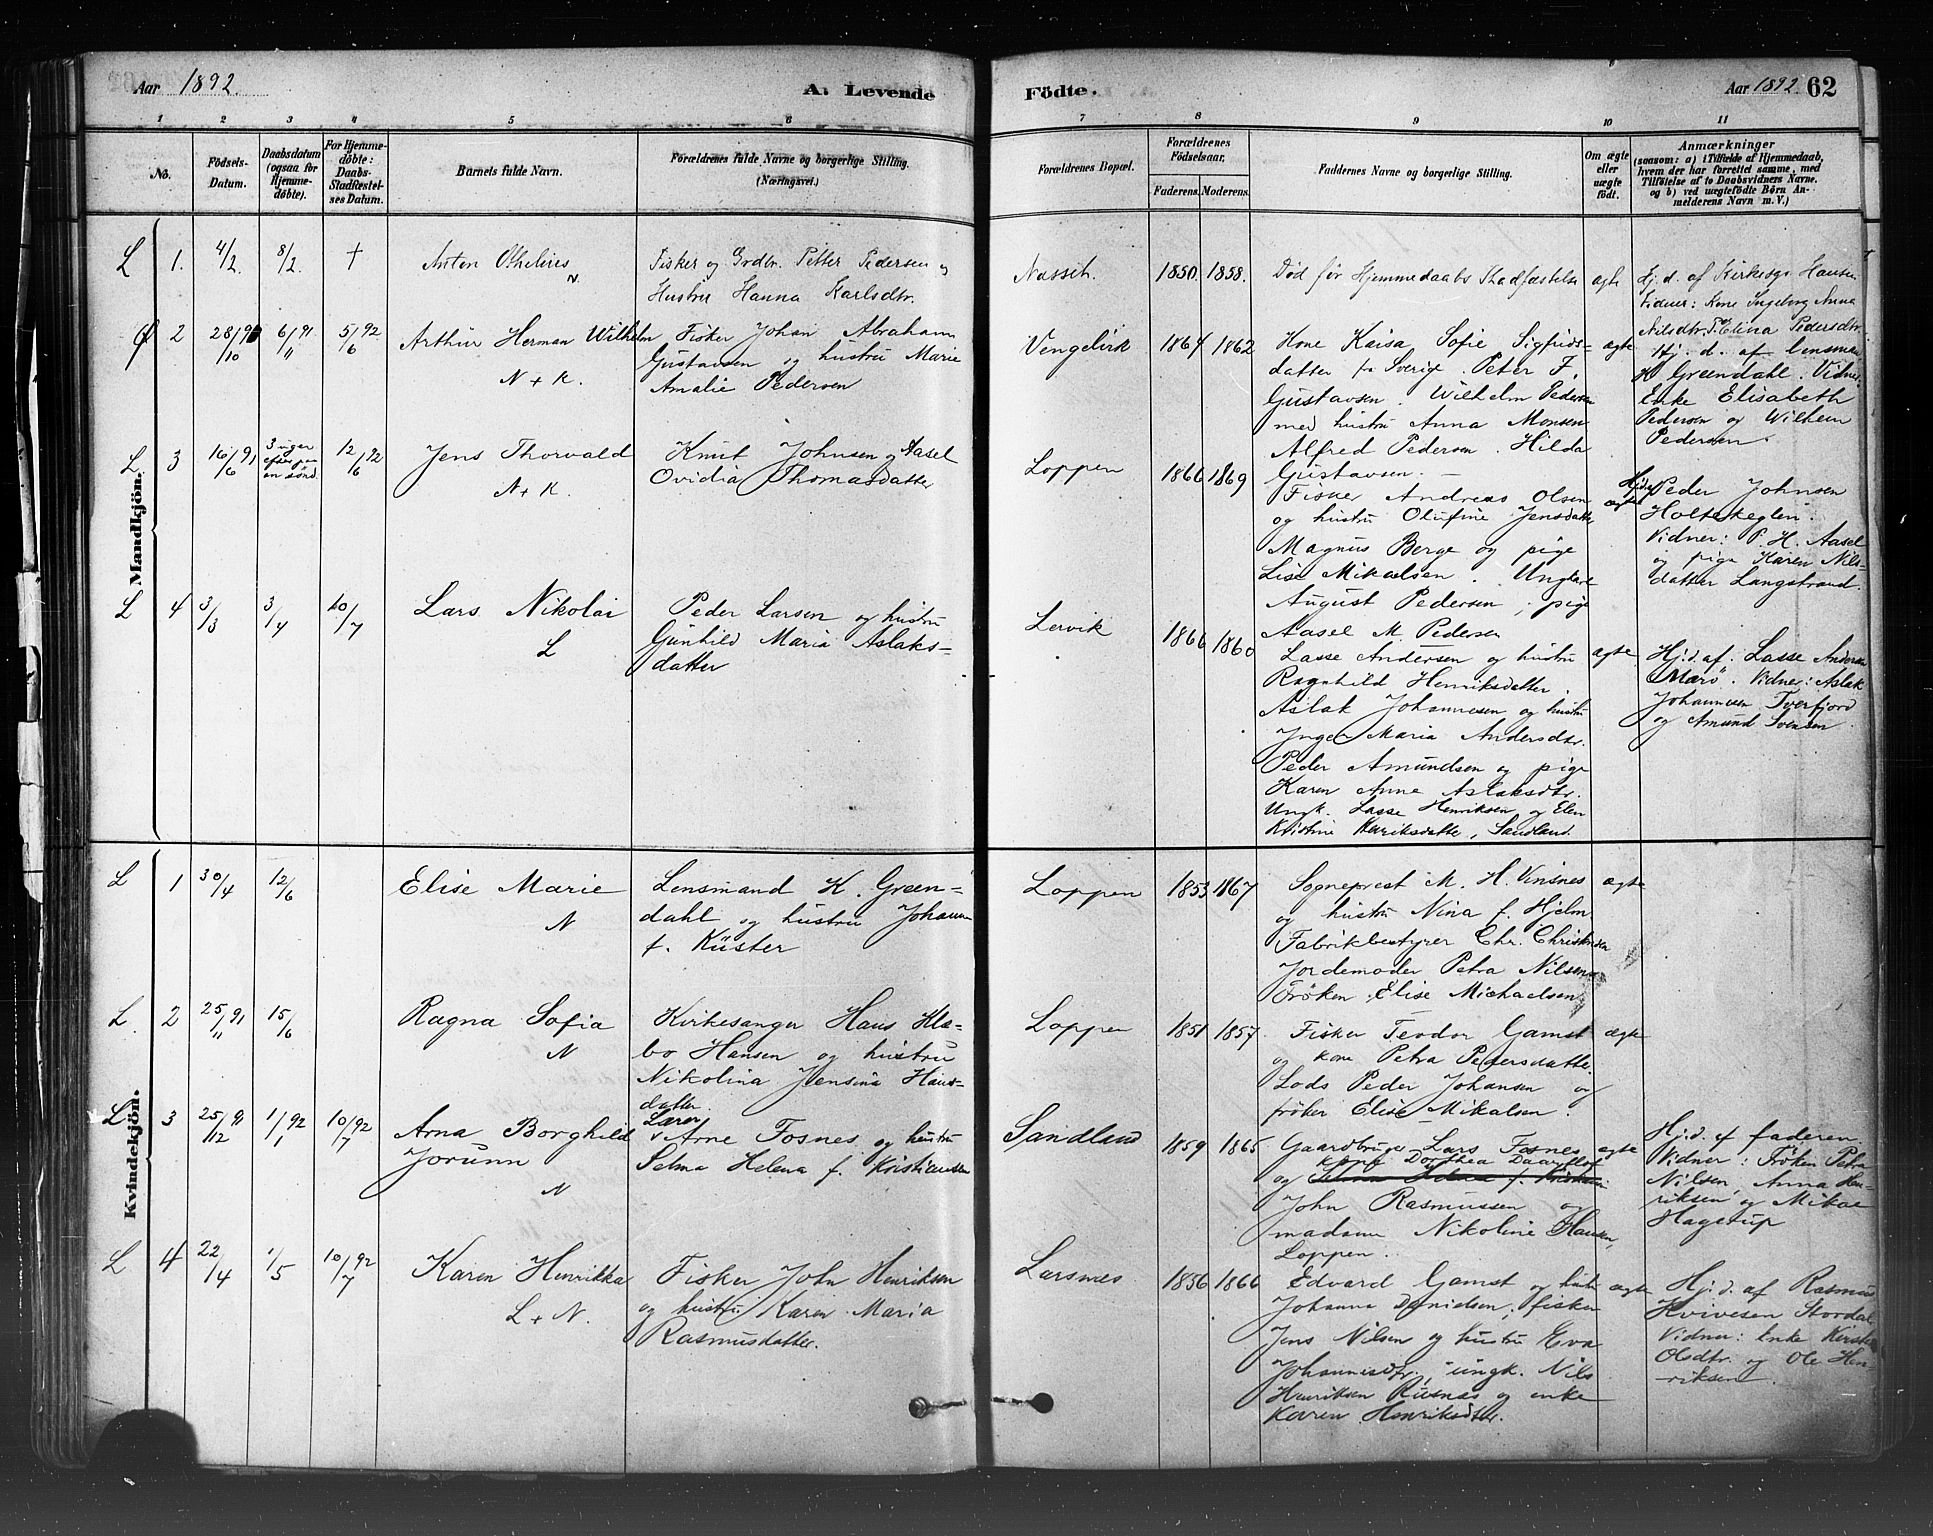 Aar 1892.
A. Levende
Födte.
Aar 1892. 62
1 2 3 4 5 6 7 8 9 10 11
No.
Födsels-
Datum.
Daabsdatum
(ogsaa for
Hjemme-
döbte).
For Hjemme-
döbte:
Daabs-
Stadfæstel-
ses Datum.
Barnets fulde Navn.
Forældrenes fulde Navne og borgerlige Stilling.
(Næringsvei.)
Forældrenes Bopæl.
Forældrenes
Födselsaar.
Faderens. Moderens.
Faddernes Navne og borgerlige Stilling.
Om ægte
eller
uægte
födt.
Anmærkninger
(saasom: a) i Tilfælde af Hjemmedaab,
hvem der har forrettet samme, med
Tilföielse af to Daabsvidners Navne.
og b) ved uægtefödte Börn An-
melderens Navn m. V.)
Mandkjön.
L 1. 4/2. 8/2. †
Anton
N.
Fisker og Grdbr. Petter Pedersen og
Hustru Hanna Karlsdtr.
1850. 1858.
Död før Hjemmedaabs Stadfæstelse
ægte
Hj. d. af Kirkesgr Hansen
Vidner: Kone Ingeborg Anna
Nilsdtr. Elina Pedersdtr.
2 28/10 6/11 91 5/6 92
Arthur Herman Wilhelm
N + K.
Fisker Johan Abraham
Gustavsen og hustru Marie
Amalie Pedersen
1864 1862
Kone Kaisa Sofie Sigfrids-
datter fra Sverige. Peter F.
Gustavsen. Wilhelm Pedersen
med hustru Anna Monsen
Alfred Pedersen. Hilda
Gustavsen. –
ægte
Hj. d. af lensman
K Greendahl. Vidner:
Enke Elisabeth
Pedersen og Wilhelm
Pedersen.
L 3 16/6 91 3 uger 12/6 92
Jens Thorvald
N + K.
Knut Johnsen Aasel
Ovidia Thomasdatter
Loppen
1866 1869
Fisker Andreas Olsen
og hustru Olufine Jensdatter
Magnus Berge og pige
Lise Mikaelsen. Ungkarl
August Pedersen, pige
Aasel M. Pedersen
ægte
Peder Johnsen
Vidner: P. H. Aasel
og pige Karen Nils-
datter Langstrand.
L 4 3/3 3/4 10/7
Lars Nikolai
L
Peder Larsen og hustru
Gunhild Maria Aslaks-
datter
Lervik
1866 1860
Lasse Andersen og hustru
Ragnhild Henriksdatter.
Aslak Johannesen og hustru
Inger Maria Andersdtr.
Peder Amundsen og pige
Karen Anne Aslaksdtr.
Ungk. Lasse Henriksen og Elen
Kristine Henriksdatter, Sandland.
ægte
Hj. d. af. Lasse Andersen
Marö. Vidner: Aslak
Johannesen Tverfjord
og Amund Svensen.
Kvindekjön.
L 1 30/4 12/6
Elise Marie
N
Lensmand K. Green-
dahl og hustru Johanne
f. Küster
Loppen
1853 1867
Sogneprest M. H. Vinsnes
og hustru Nina f. Hjelm
Fabrikbestyrer Chr. Christensen
Jordemoder Petra Nilsen
Frøken Elise Michaelsen
ægte
L. 2 25/11 91 15/6
Ragna Sofia
N
Kirkesanger Hans Klæ-
bo Hansen og hustru
Nikolina Jensina Hans-
datter.
Loppen
1851 1857
Fisker Teodor Gamst
og kone Petra Pedersdatter.
Lods Peder Johansen og
frøken Elise Mikalsen.
ægte
L 3 25/12 91 1/1 92 10/7 92
Arna Borghild
Jorunn
N
Lærer
Arne Fosnes og hustru
Selma Helena f. Kristiansen
Sandland
1859 1865
Gaardbruger Lars Fosnes
kone Dorthea
og
John Rasmussen og
madam Nikoline Hansen,
Loppen.
ægte
Hj. d. af faderen.
Vidner: Frøken Petra
Nilsen, Anna Hen-
riksen og Mikal
Hagstrup
L 4 22/4 1/5 10/7 92
Karen Henrikka
L + N.
Fisker John Henriksen
og hustru Karen Maria
Rasmusdatter.
Larsnes
1856 1866
Edvard Gamst og hustru
Johanna Danielsen, fisker
Jens Nilsen og hustru Eva
Johannisdtr, ungk. Nils
Henriksen Riisnæs og enke
Karen Henriksdtr.
ægte
Hj. d. af Rasmus
Hvivesen Stordal
Vidner: Enke Kirsten
Olsdtr. og Ole Hen-
riksen.